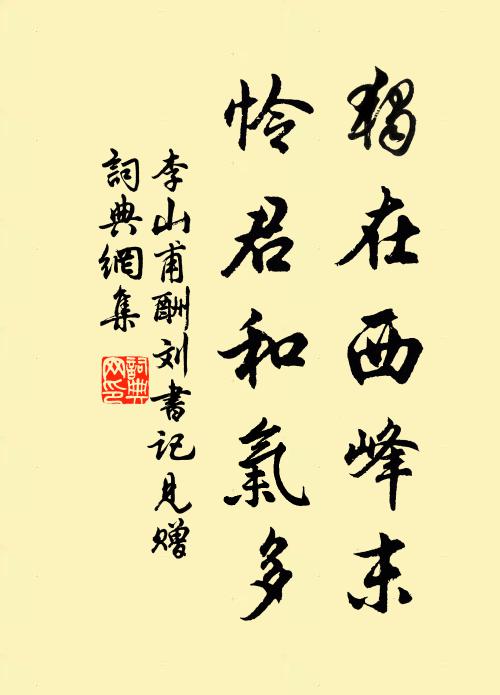 獨在西峰末
憐君和氣多
李山甫酬刘書记見赠
詞典網集
詞典网印